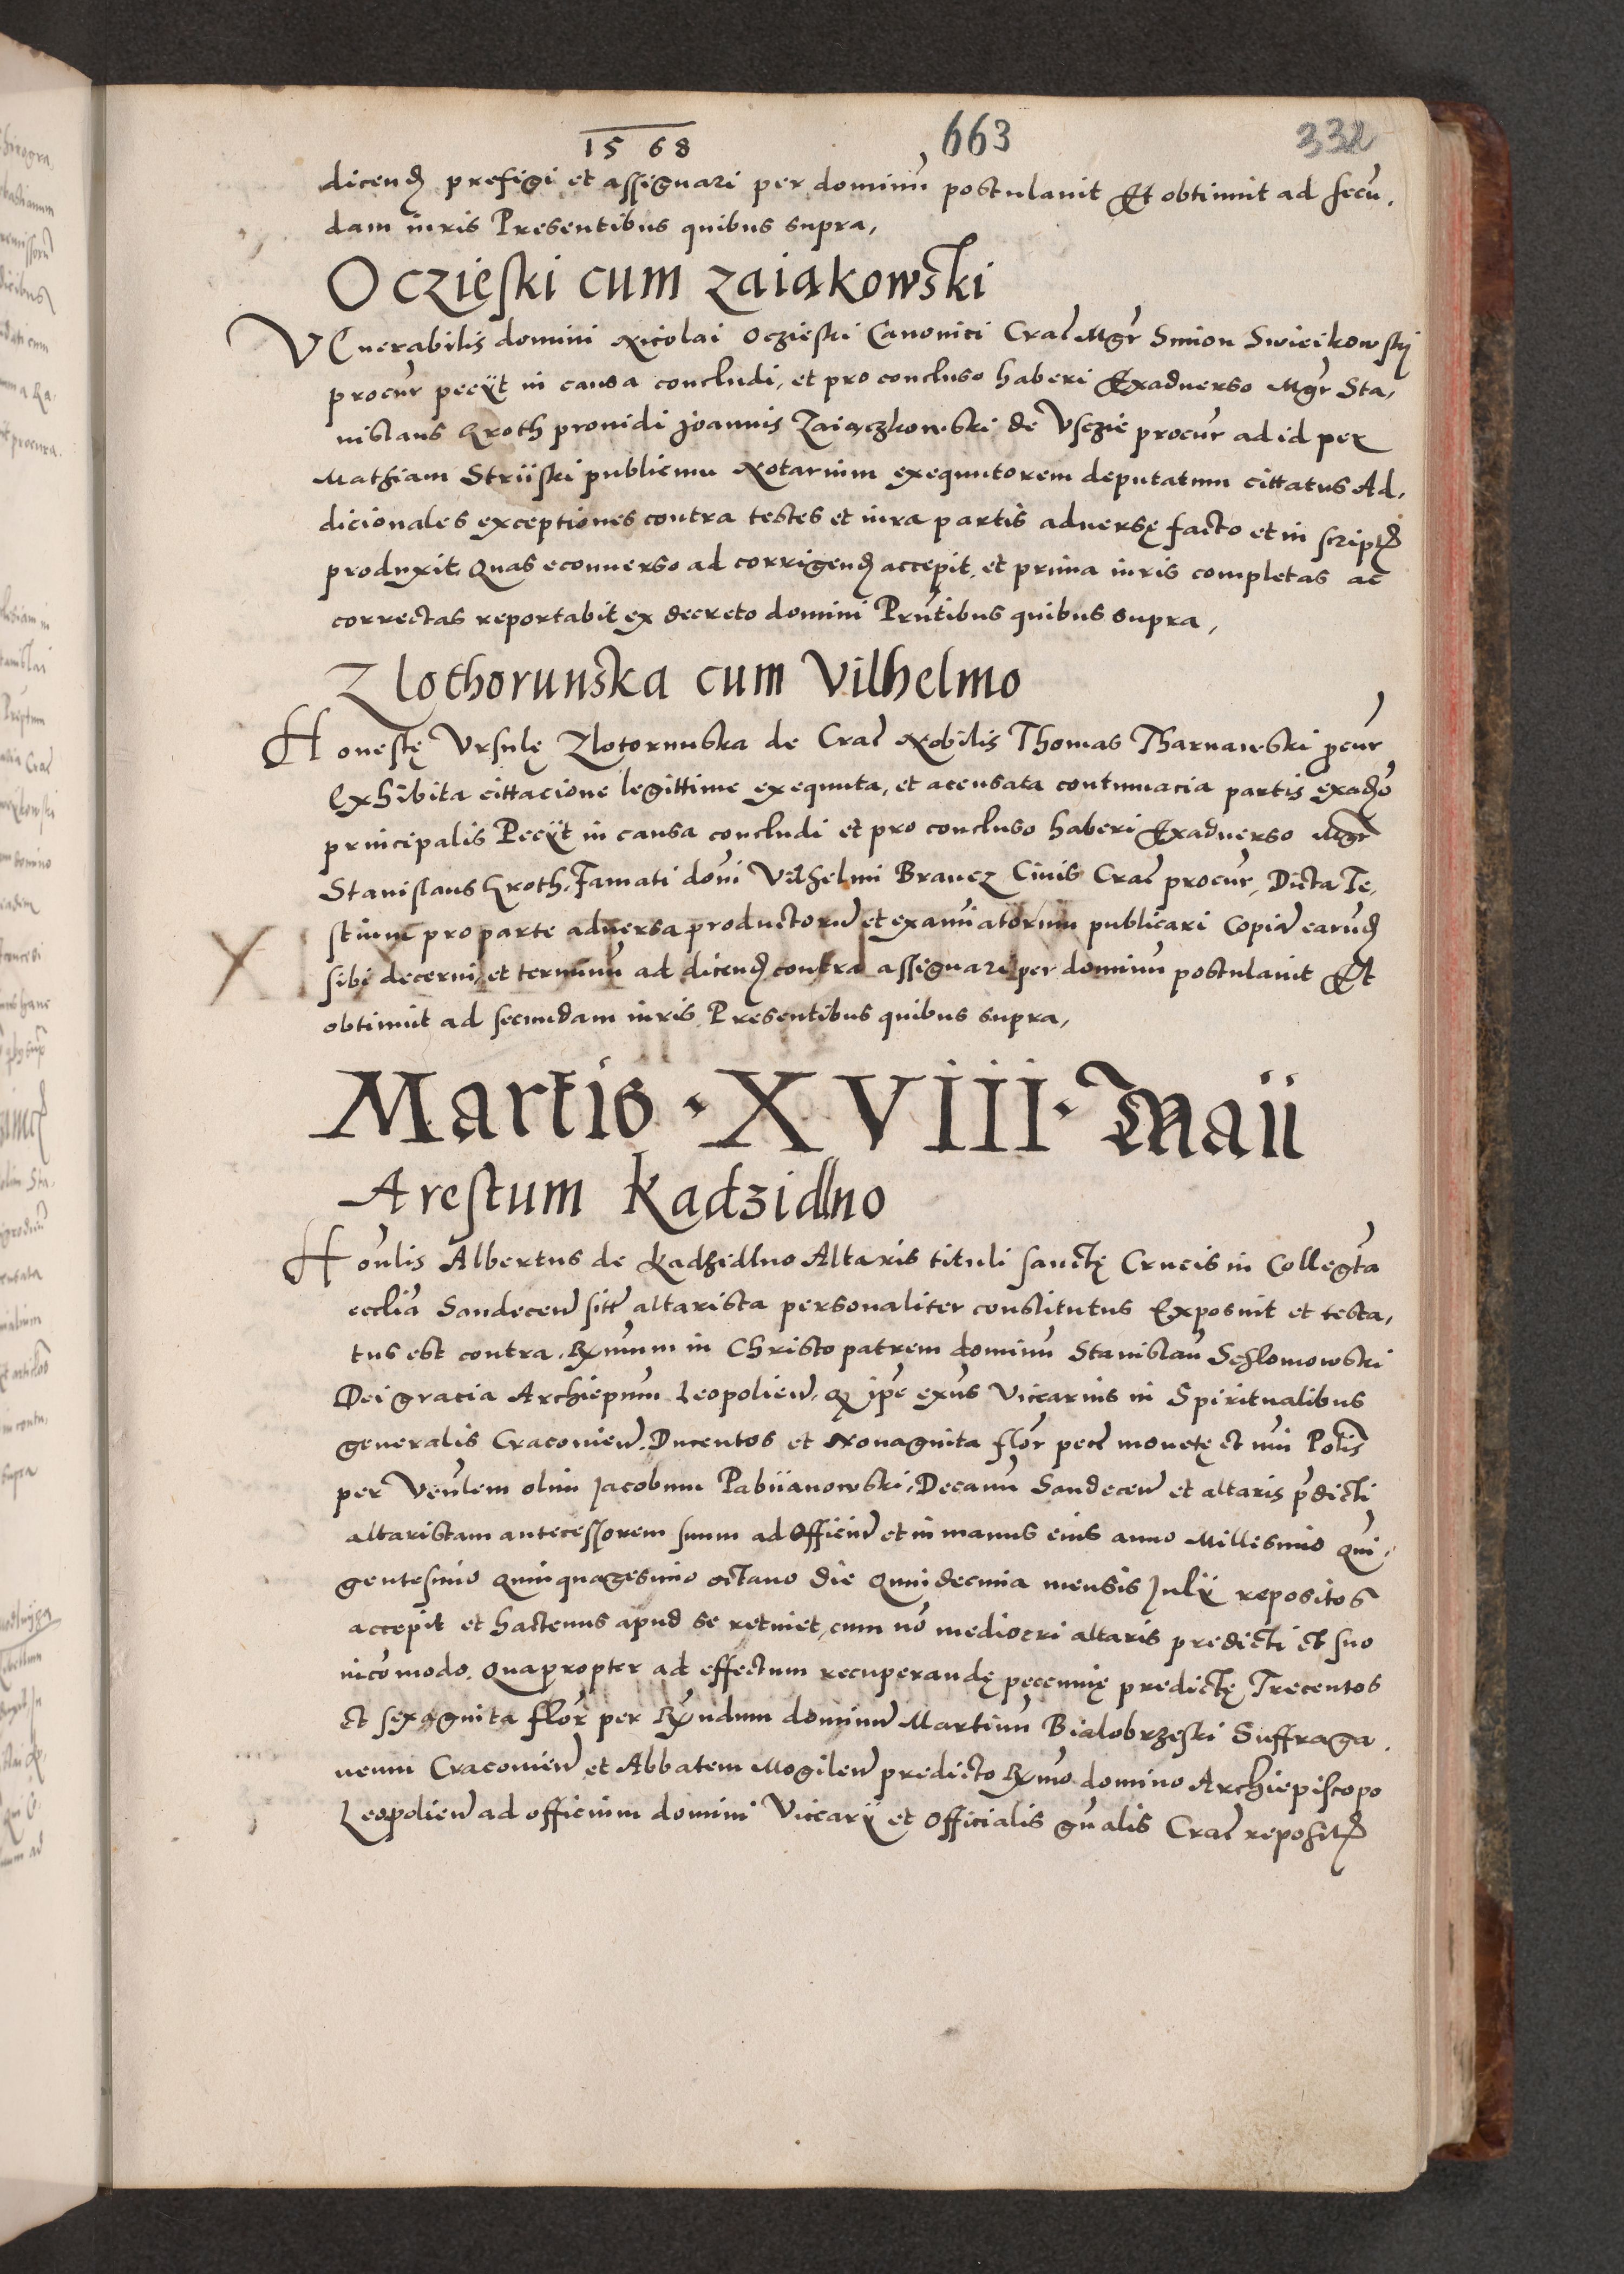 1568 663 332
dicend prefigi et assignari per dominū postulavit Et obtinuit ad secu,
dam iuris Presentibus quibus supra,
Oczieski cum Zaiąkowski
Venerabilis domini Nicolai Oczieski Canonici Crac Mgr Simon Swieikowskj
procur peeijt in causa concludi, et pro concluso haberi Exadverso Mgr Sta,
nislaus Kroth providi Joannis Zaiączkowski de Vsczie procur ad id per
Mathiam Strijski publicum Notarium exequutorem deputatum cittatus Ad,
dicionales exceptiones contra testes et iura partis adversę facto et in script
produxit, Quas econverso ad corrigend accepit, et prima iuris completas ac
correctas reportabit ex decreto domini Prntibus quibus supra,
Zlothorunska cum Vilhelmo
Honestę Vrsulę Zlotorunska de Crac Nobilis Thomas Tharnawski pcur
Exhibita cittacione legittime exequuta, et acensata contumacia partis exado
principalis Peeijt in causa concludi et pro concluso haberi Exadverso Mgr
Stanislaus Kroth, Famati doni Vilhelmi Brancz Civis Crac procur, Dicta Te,
stium pro parte adversa productorū et examinatorum publicari Copiā earūd
sibi decerni, et terminū ad dicend contra assignari per dominū postulavit Et
obtinuit ad secundam iuris Presentibus quibus supra,
Martis · XVIIII · Maii
Arestum Kadzidlno
Honlis Albertus de Kadzidlno Altaris tituli sanctę Crucis in Collegta
ecclia Sandecen sitt altarista personaliter constitutus Exposuit et testa,
tus est contra Rmum in Christo patrem dominū Stanislaū Schlomowski
Dei gracia Archiepnum Leopolien, Q ipe exns Viccarius in Spiritualibus
generalis Cracovien, Ducentos et Nonaginta flor pecc monetę et nūi Polis
per Venlem olim Jacobum Pabijanowski, Decanū Sandecen et altaris pdicti
altaristam antecessorem suum ad Officiū et in manus eius anno Millesimo Qui,
gentesimo quinquagesimo octavo die quindecima mensis Julij repositos
accepit et hactenus apud se retinet, cum nō mediocri altaris predicti et suo
incōmodo, Quapropter ad effectum recuperandę pecenię predictę Trecentos
et sexaginta flor per Rndum dominū Martinū Bialobrzeski Suffraga,
neum Cracovien et Abbatem Mogilen predicto Rmo domino Archiepiscopo
Leopolien ad officium domini Viccarij et Officialis gnalis Crac reposit